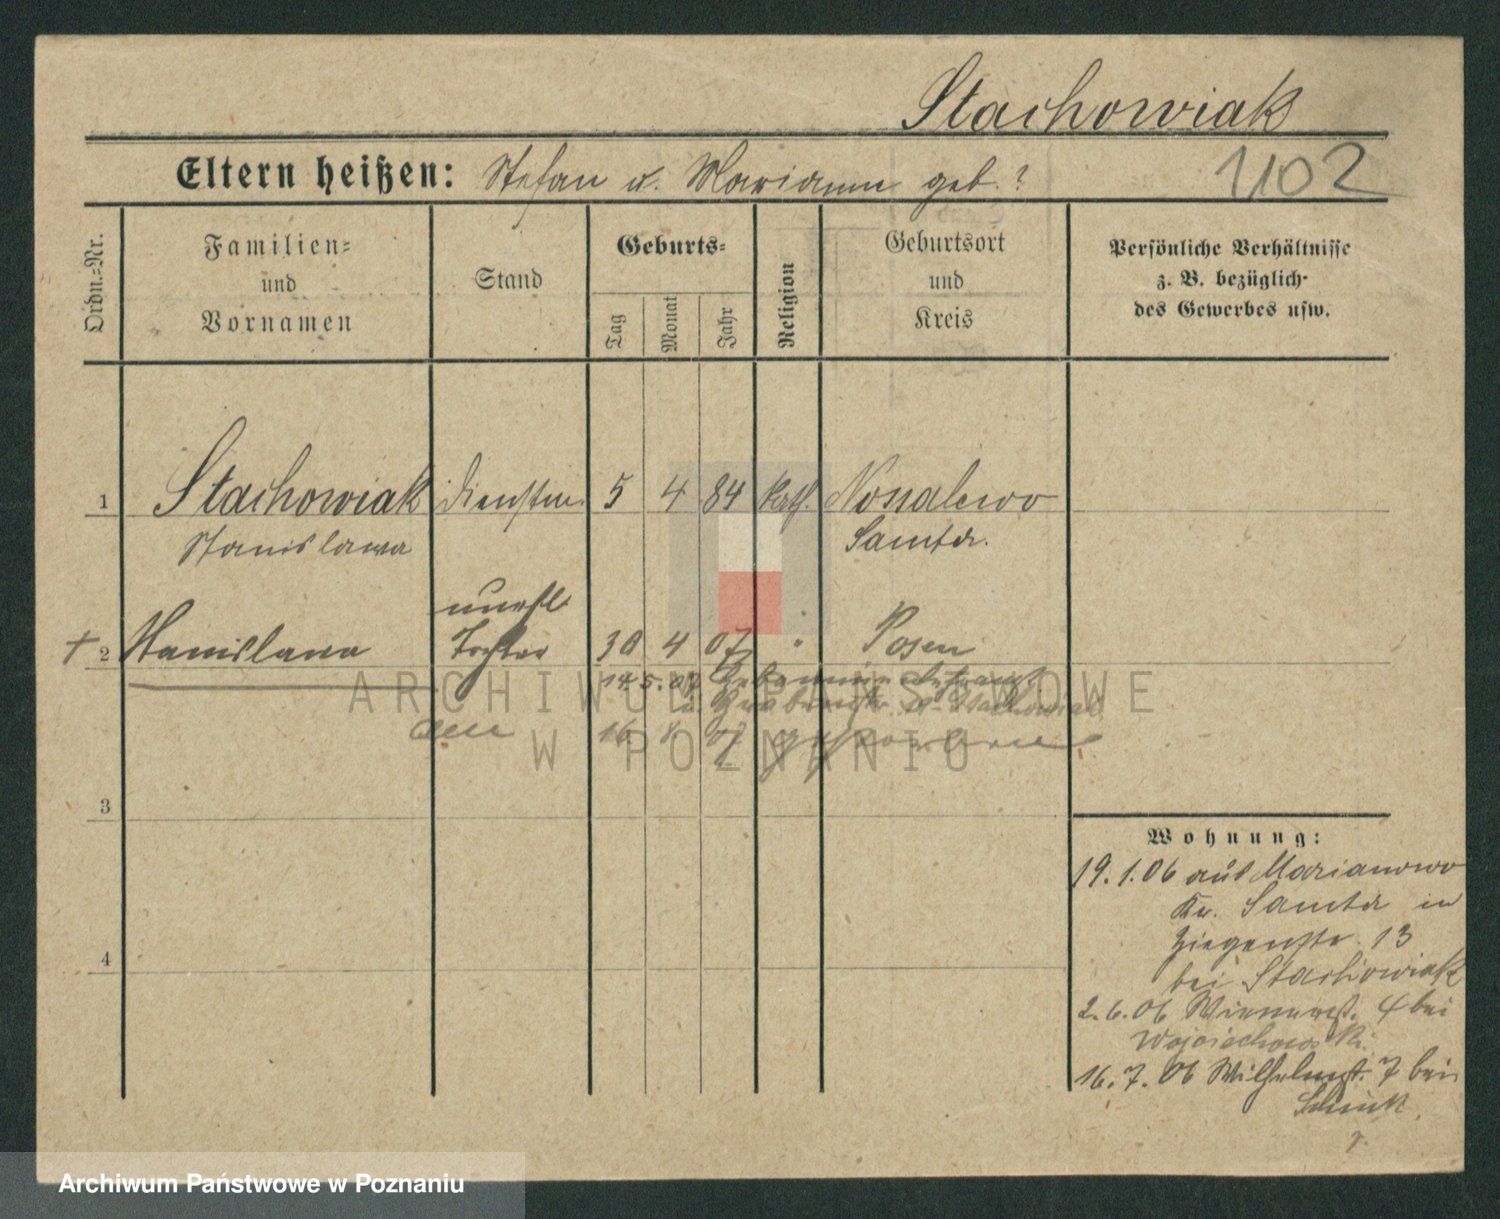 Stachowiak
Eltern heißen: Stefan u. Marianna geb. ?
1102
Ordn.=Nr.
Familien=
und
Vornamen
Stand
Geburts=
Tag
Monat
Jahr
Religion
Geburtsort
und
Kreis
Persönliche Verhältnisse
z. B. bezüglich
des Gewerbes usw.
1 Stachowiak Dienstm. 5 4 84 kath. Nossalewo
Stanislawa Samter.
unehl
† 2 Stanislawa Tochter 30 4 07 " Posen
14. 5. 07
16 8 07 gestorben
ARCHIWUM PAŃSTWOWE
W POZNANIU
3
4
Wohnung:
19.1.06 aus Marianowo
Kr. Samter in
Ziegenstr. 13
bei Stachowiak
2.6.06 Wienerst. 4 bei
Wojciechowski
16.7.06 Wilhelmst. 7 bei
Schück
Archiwum Państwowe w Poznaniu